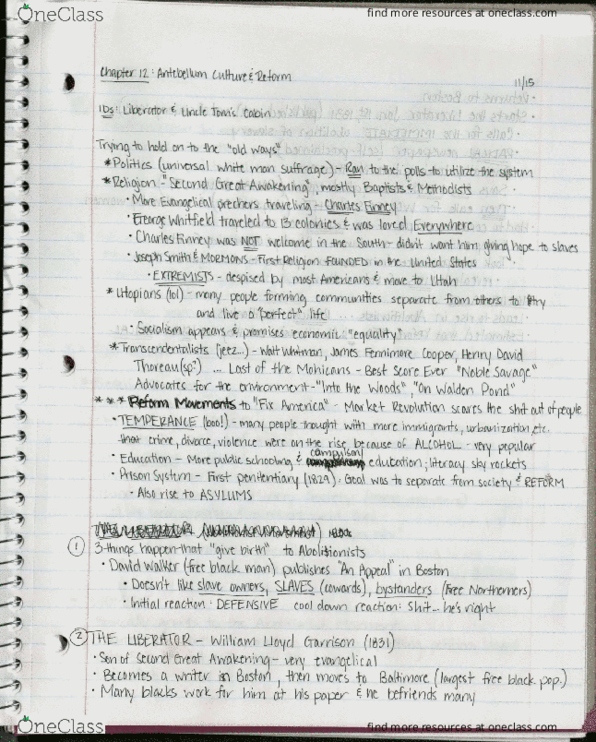 OneClass
find more resources at oneclass.com
Chapter 12: Antebellum Culture & Reform
11/15
IDs: Liberator & Uncle Tom's Cabin
Trying to hold on to the "old ways"
*Politics (universal white man suffrage) - Ran to the polls to utilize the system
*Religion - "Second Great Awakening", mostly Baptists & Methodists
• More Evangelical prechers traveling - Charles Finney
• George Whitfield traveled to 13 colonies & was loved Everywhere
• Charles Finney was NOT welcome in the South - didn't want him giving hope to slaves
• Joseph Smith & MORMONS - First Religion FOUNDED in the United States
• EXTREMISTS - despised by most Americans & move to Utah
*Utopians (lol) - many people forming communities separate from others to try
and live a "perfect" life
• Socialism appears & promises economic "equality"
*Transcendentalists (jeez...) - Walt Whitman, James Fennimore Cooper, Henry David
Thoreau (sp?) ... Last of the Mohicans - Best Score Ever "Noble Savage"
Advocates for the environment - "Into the Woods", "On Walden Pond"
*** Reform Movements to "Fix America" - Market Revolution scares the shit out of people
• TEMPERANCE (boo!) - many people thought with more immigrants, urbanization etc.
that crime, divorce, violence were on the rise because of ALCOHOL - very popular
• Education - More public schooling & compulsory education; literacy sky rockets
• Prison System - First penitentiary (1829): Goal was to separate from society & REFORM
• Also rise to ASYLUMS
① 3 things happen that "give birth" to Abolitionists
• David Walker (free black man) publishes "An Appeal" in Boston
• Doesn't like slave owners, SLAVES (cowards), bystanders (free Northerners)
• Initial reaction: DEFENSIVE cool down reaction: Shit... he's right
② THE LIBERATOR - William Lloyd Garrison (1831)
• Son of Second Great Awakening - very evangelical
• Becomes a writer in Boston, then moves to Baltimore (largest free black pop.)
• Many blacks work for him at his paper & he befriends many
OneClass
find more resources at oneclass.com